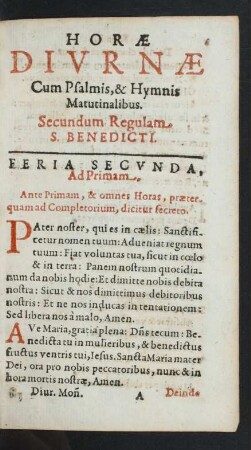 HORÆ
DIVRNÆ
Cum Psalmis, & Hymnis
Matutinalibus.
Secundum Regulam
S. BENEDICTI.
FERIA SECVNDA,
Ad Primam
Ante Primam, & omnes Horas, præter-
quam ad Completorium, dicitur secreto.
PAter noster, qui es in cælis: Sanctifi-
cetur nomen tuum: Adueniat regnum
tuum: Fiat voluntas tua, sicut in cœlo
& in terra: Panem nostrum quotidia-
num da nobis hodie: Et dimitte nobis debita
nostra: Sicut & nos dimittimus debitoribus
nostris: Et ne nos inducas in tentationem:
Sed libera nos à malo, Amen.
AVe Maria, gratia plena: Dñs tecum: Be-
nedicta tu in mulieribus, & benedictus
fructus ventris tui, Iesus. Sancta Maria mater
Dei, ora pro nobis peccatoribus, nunc & in
hora mortis nostræ, Amen.
Diur. Moñ. A Deinde